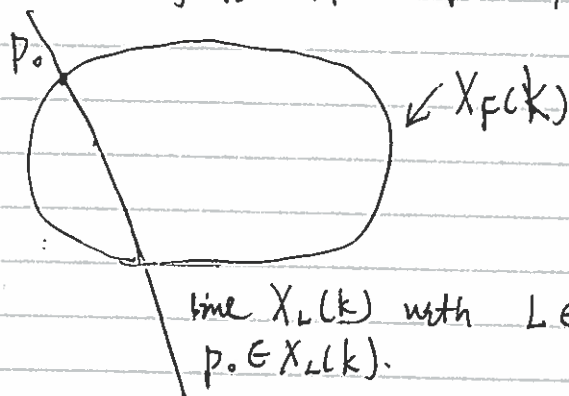 P₀
X_F(k)
line X_L(k) with L ∈
p₀ ∈ X_L(k).